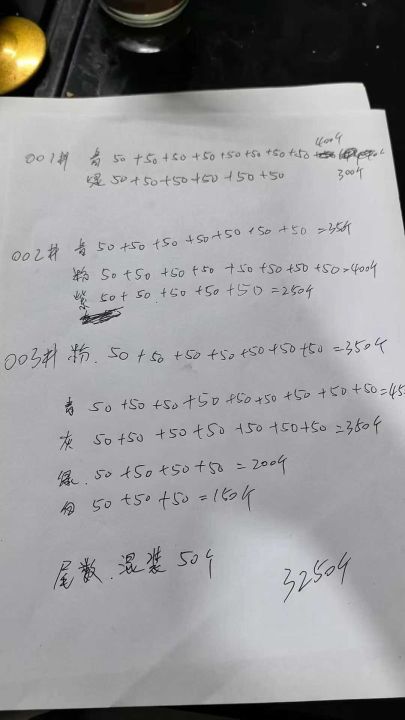 001# 青 50+50+50+50+50+50+50+50 400个
绿 50+50+50+50+50+50 300个
002# 青 50+50+50+50+50+50+50=350个
粉 50+50+50+50+50+50+50+50=400个
紫 50+50+50+50+50=250个
003# 粉. 50+50+50+50+50+50+50=350个
青 50+50+50+50+50+50+50+50+50=45
灰 50+50+50+50+50+50+50=350个
绿. 50+50+50+50=200个
白 50+50+50=150个
尾数.混装 50个
3250个